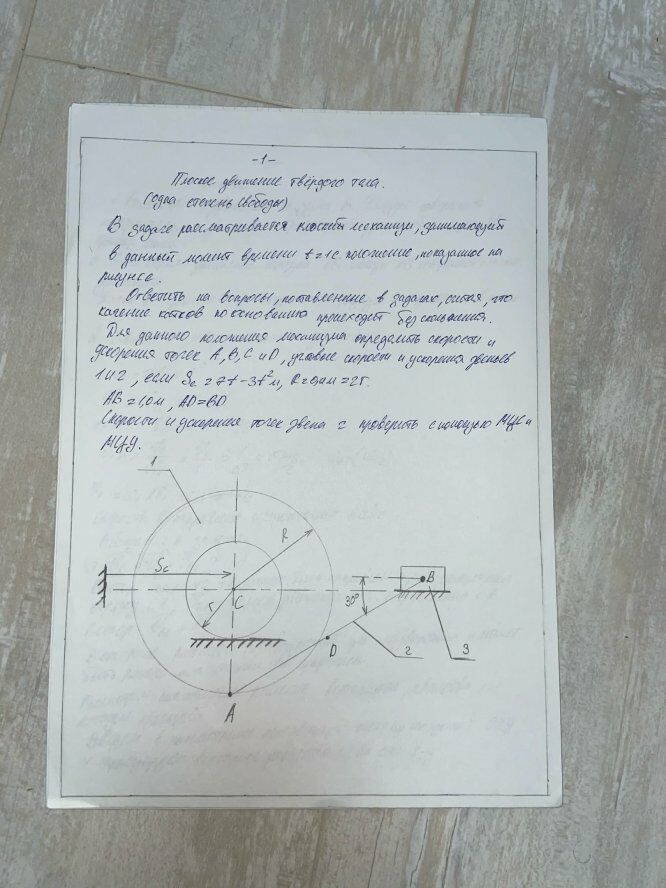 -1-
Плоское движение твёрдого тела.
(одна степень свободы)
В задаче рассматривается плоский механизм, занимающий
в данный момент времени t=1c положение, показанное на
рисунке.
Ответить на вопросы, поставленные в задании, считая, что
качение катков по основанию происходит без скольжения.
Для данного положения механизма определить скорости и
ускорения точек A, B, C и D, угловые скорости и ускорения звеньев
1 и 2, если Sc = 7t - 3t² м, R = =2r.
AB = 1,0 м, AD = BD
Скорости и ускорения точек звена 2 проверить с помощью МЦС и
МЦУ.
1
R
Sc
r
C
30°
B
D
2
3
A